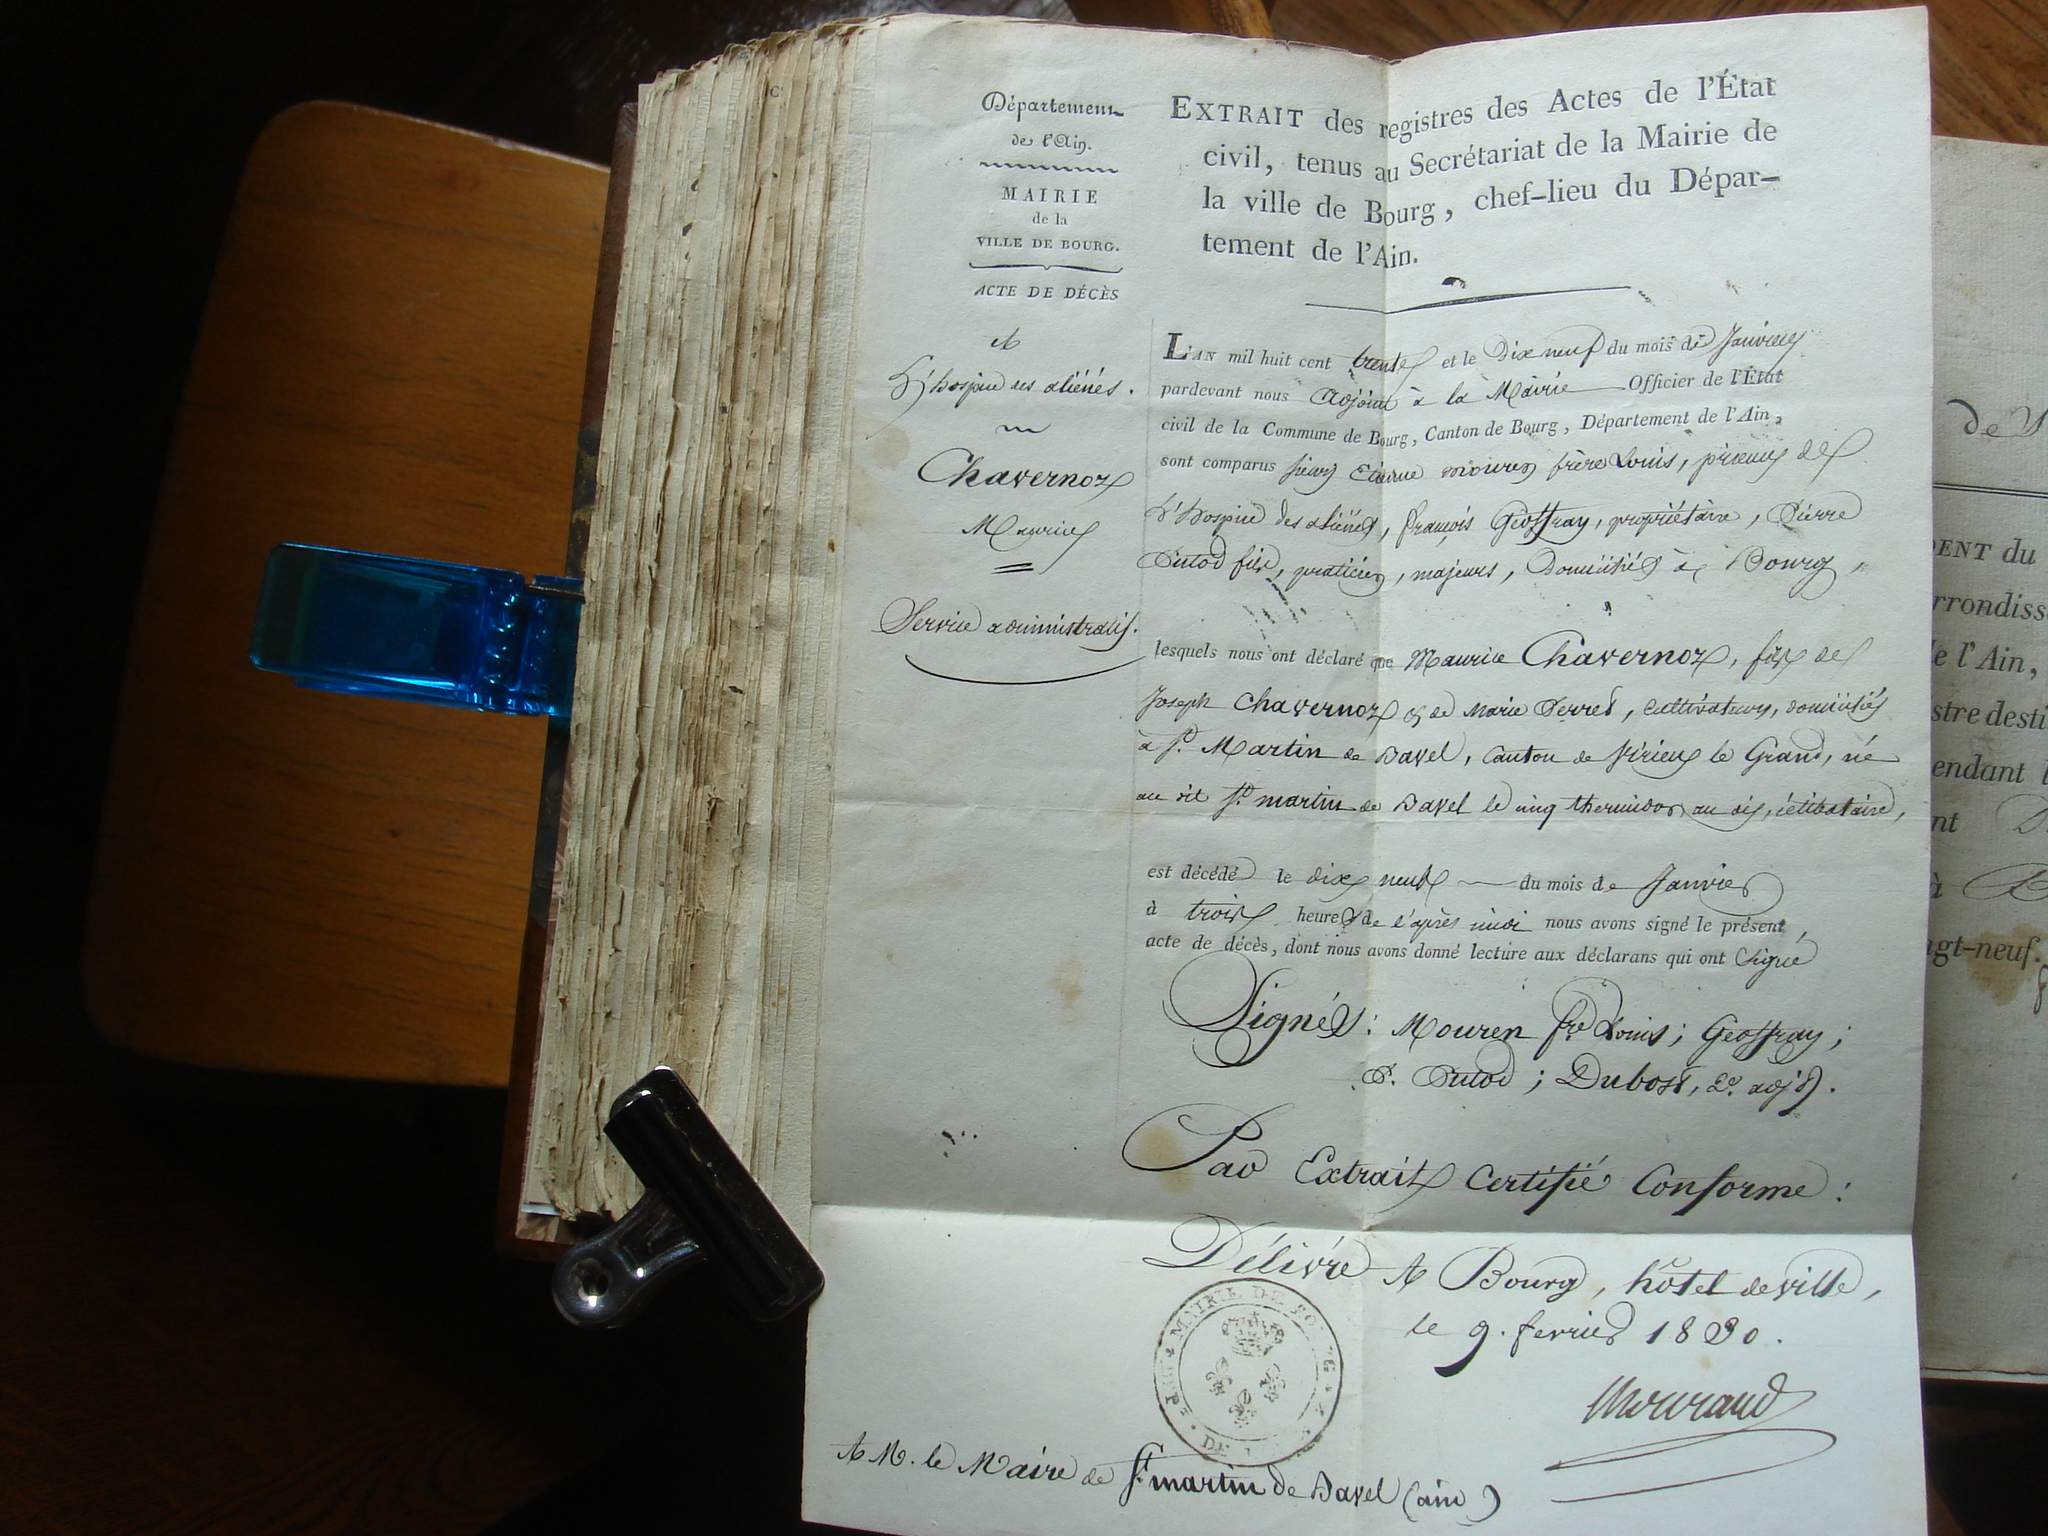 Département
de l'Ain.
MAIRIE
de la
VILLE DE BOURG.
ACTE DE DÉCÈS
A
L'hospice des aliénés.
Chavernoz
Maurice
Service administratif.
EXTRAIT des registres des Actes de l'État
civil, tenus au Secrétariat de la Mairie de
la ville de Bourg, chef-lieu du Dépar-
tement de l'Ain.
L'AN mil huit cent trente et le Dix neuf du mois de Janvier
pardevant nous Adjoint à la Mairie Officier de l'État
civil de la Commune de Bourg, Canton de Bourg, Département de l'Ain,
sont comparus sieurs Etienne mouren frère Louis, prieur de
L'hospice des aliénés, françois Geoffray, propriétaire, Pierre
Putod fils, praticien, majeurs, Domiciliés à Bourg,
lesquels nous ont déclaré que Maurice Chavernoz, fils de
Joseph Chavernoz & de Marie Serret, cultivateurs, domiciliés
à St. Martin de Bavel, canton de Virieu le Grand, né
au dit St. martin de Bavel le cinq thermidor an dix, célibataire,
est décédé le dix neuf du mois de Janvier
à trois heures de l'après midi nous avons signé le présent
acte de décès, dont nous avons donné lecture aux déclarans qui ont signé
Signés: Mouren fre Louis; Geoffray;
P. Putod; Dubost, 2e. adjt.
Par Extrait Certifié Conforme:
Délivré A Bourg, hôtel de ville,
le 9. fevrier 1830.
MAIRIE DE BOURG
A M. le Maire de St. martin de Bavel (ain)
DENT du
de l'Ain,
endant
à
ngt-neuf.